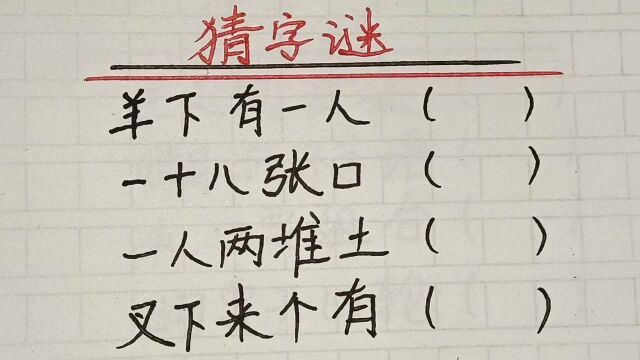 猜字谜
羊下有一人（ ）
一十八张口（ ）
一人两堆土（ ）
叉下来个有（ ）